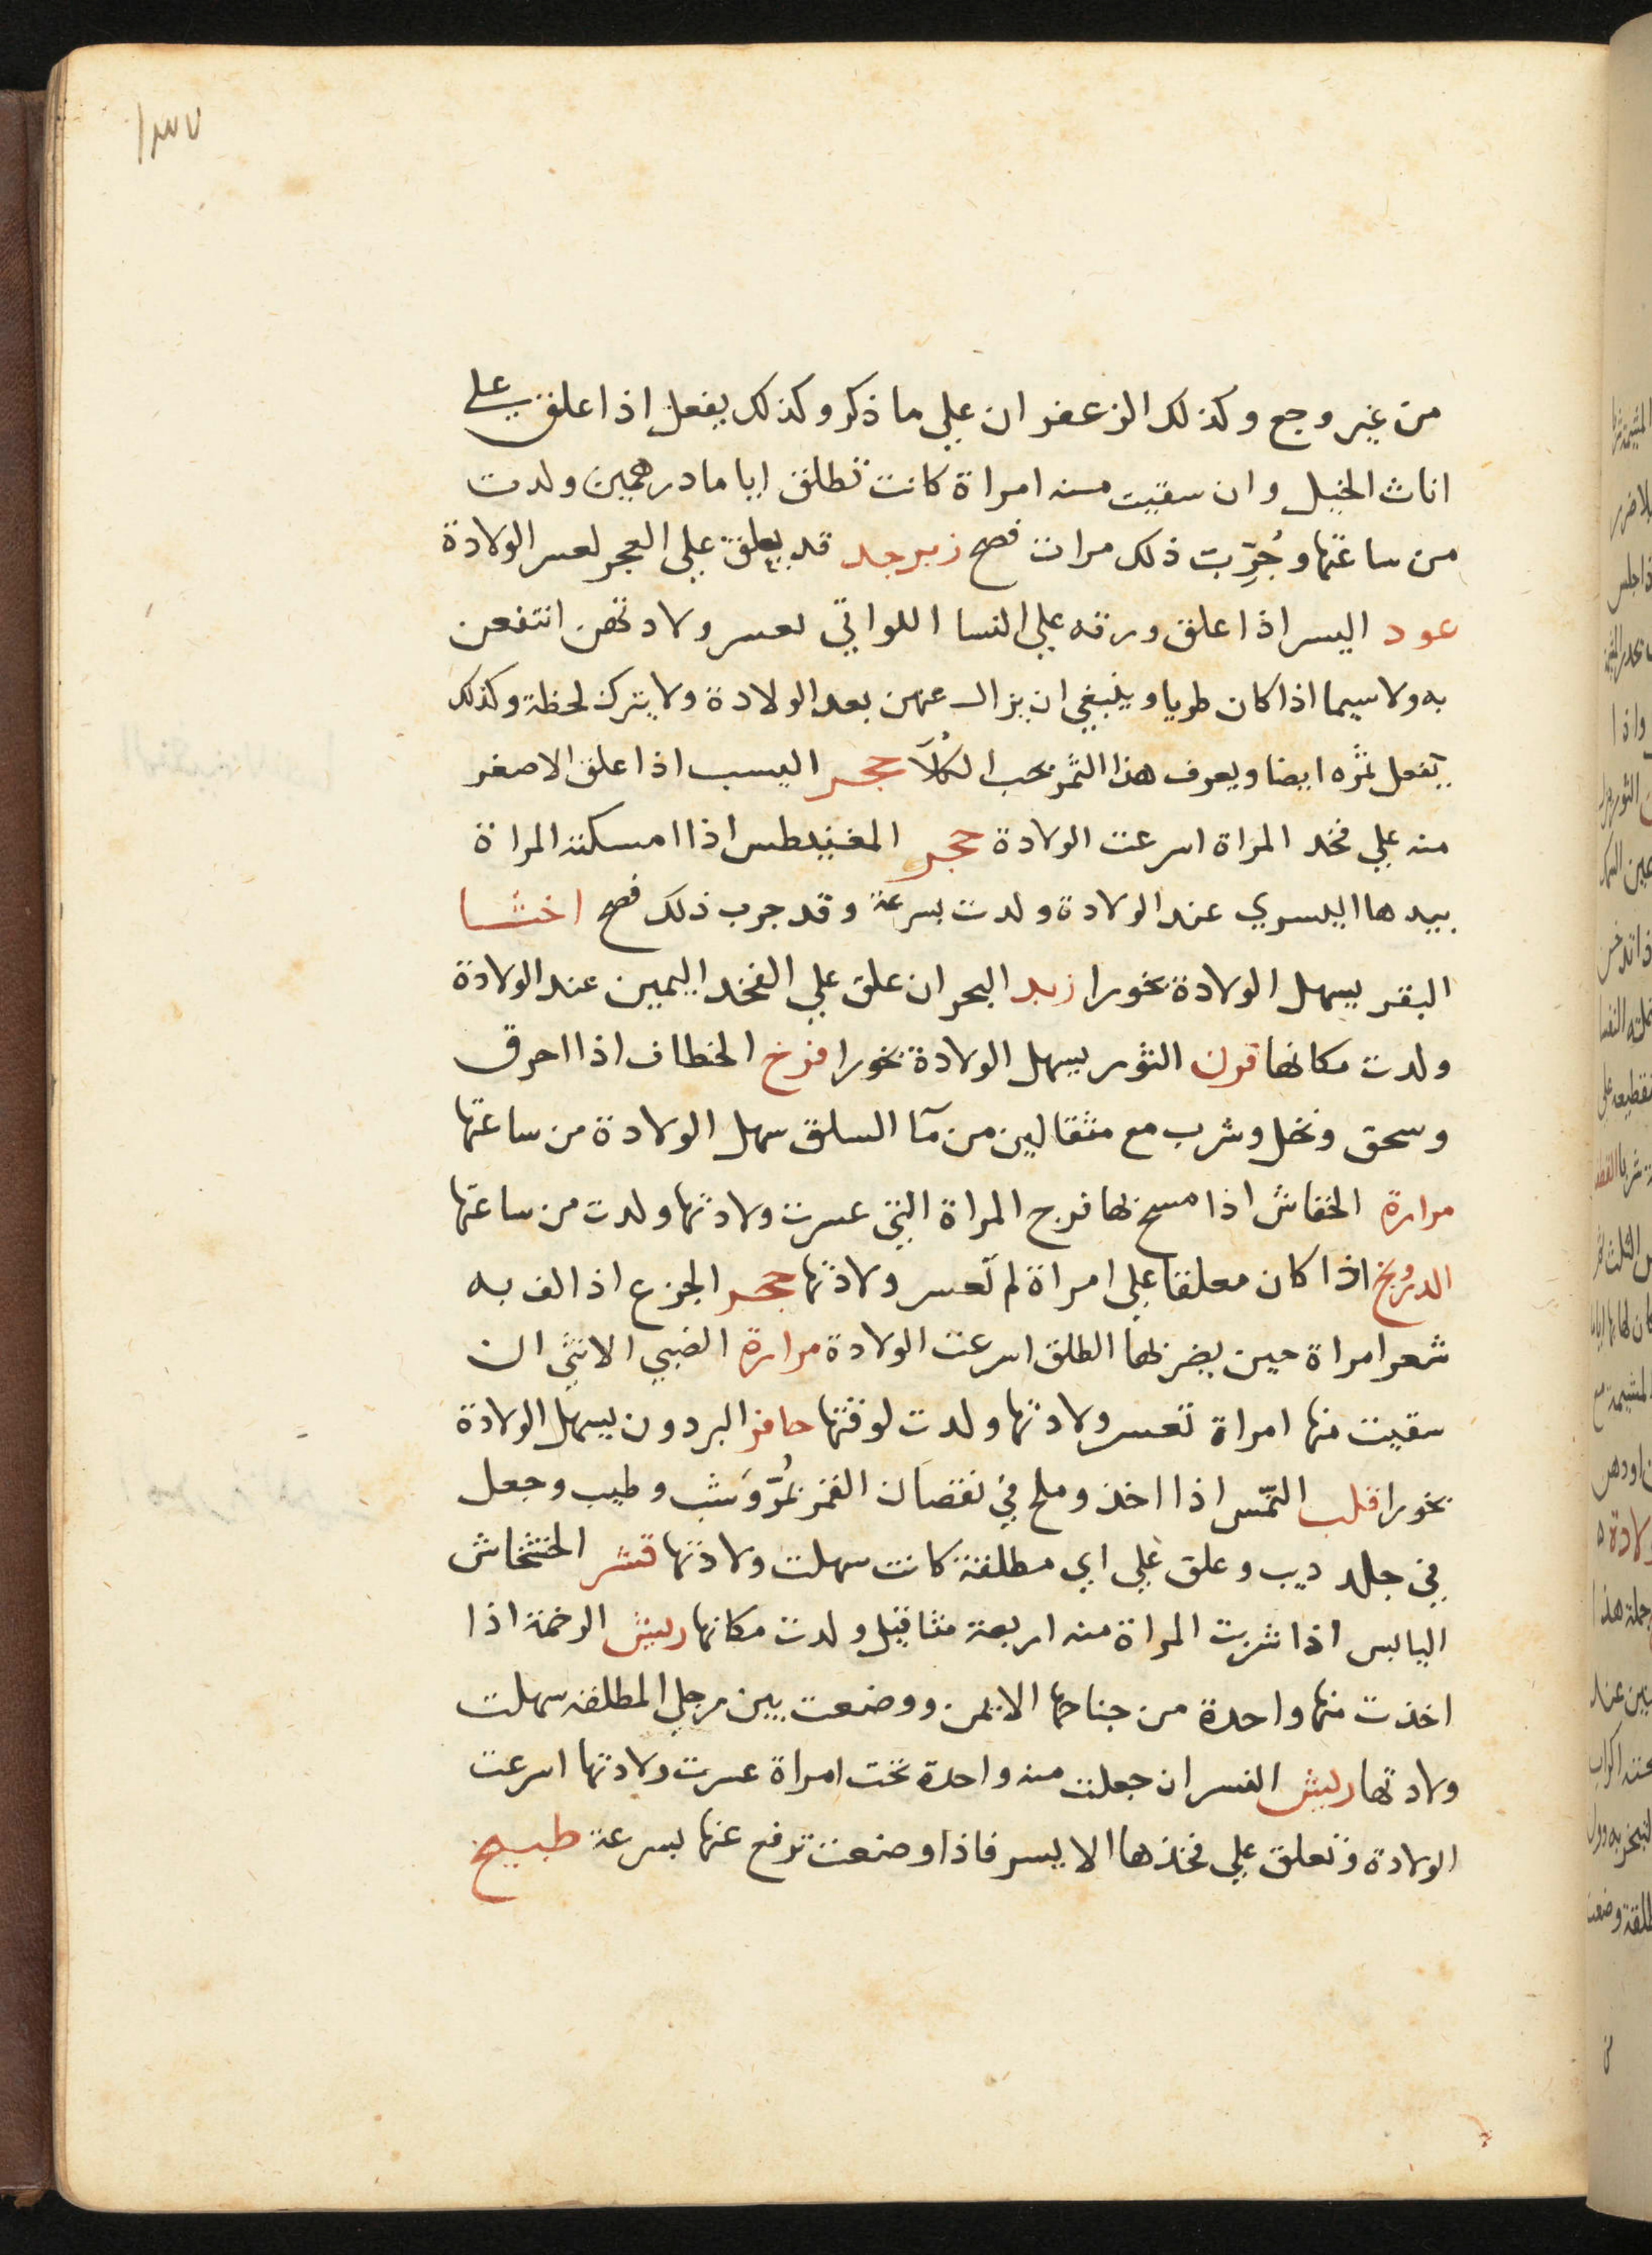 ١٣٧
من غير وجع وكذلك الزعفران علي ما ذكر وكذلك يفعل اذا علق علي
اناث الخيل وان سقيت منه امراة كانت تطلق اياما درهمين ولدت
من ساعتها وجُرِّبت ذلك مرات فصح زبرجد قد يعلق علي العجز لعسر الولادة
عود اليسر اذا علق ورقه علي النسا اللواتي تعسر ولادتهن انتفعن
به ولا سيما اذا كان طريا وينبغي ان يزال عنهن بعد الولادة ولا يترك لحظة وكذلك
يفعل ثمره ايضا ويعرف هذا الثمر بحب الكلا حجر اليسب اذا علق الاصفر
منه علي فخد المراة اسرعت الولادة حجر المغنيطس اذا امسكته المراة
بيدها اليسري عند الولادة ولدت بسرعة وقد جرب ذلك فصح اخثا
البقر يسهل الولادة بخورا زبد البحر ان علق علي الفخد اليمين عند الولادة
ولدت مكانها قرن الثور يسهل الولادة بخورا فرخ الخطاف اذا احرق
وسحق ونخل وشرب مع مثقالين من مآ السلق سهل الولادة من ساعتها
مرارة الخفاش اذا مسح بها فرج المراة التي عسرت ولادتها ولدت من ساعتها
الدرونج اذا كان معلقا علي امراة لم تعسر ولادتها حجر الجزع اذا لف به
شعر امراة حين يضربها الطلق اسرعت الولادة مرارة الضبي الانثي ان
سقيت منها امراة تعسر ولادتها ولدت لوقتها حافر البردون يسهل الولادة
بخورا قلب النمس اذا اخذ وملح في نقصان القمر بمُرّ وشب وطيب وجعل
في جلد ديب وعلق علي اي مطلقة كانت سهلت ولادتها قشر الخشخاش
اليابس اذا شربت المراة منه اربعة مثاقيل ولدت مكانها ريش الرخمة اذا
اخذت منها واحدة من جناحها الايمن ووضعت بين رجلي المطلقه سهلت
ولادتها ريش النسر ان جعلت منه واحدة تحت امراة عسرت ولادتها اسرعت
الولادة وتعلق علي فخذها الايسر فاذا وضعت ترفع عنها بسرعة طبيخ